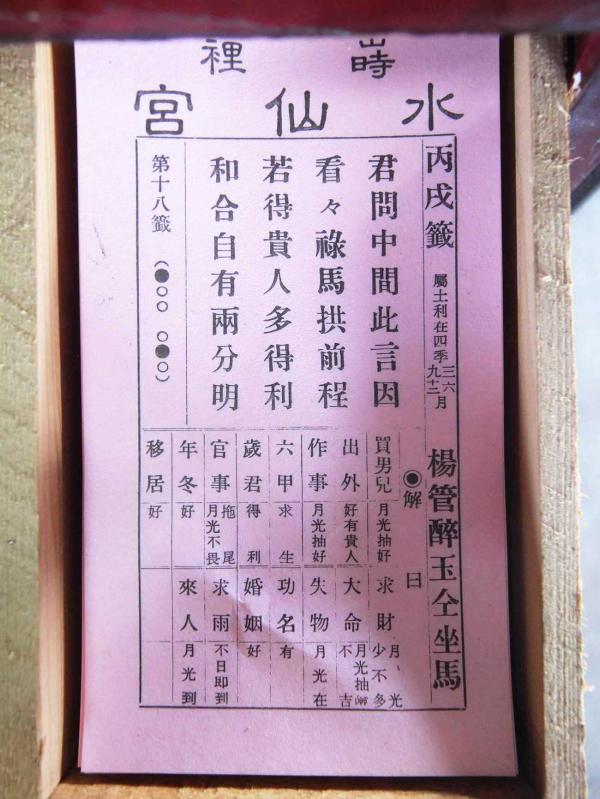 嵵裡
水仙宮
丙戌籤 屬土利在四季三六九十二月 楊管醉玉仝坐馬
君問中間此言因
看々祿馬拱前程
若得貴人多得利
和合自有兩分明
第十八籤 (●○○ ○●○)
◉解曰
買男兒 月光抽好 求財 月光少不多
出外 好有貴人 大命 月光抽不吉
作事 月光抽好 失物 月光在
六甲 求生 功名 有
歲君 得利 婚姻 好
官事 拖尾月光不畏 求雨 不日即到
年冬 好 來人 月光到
移居 好